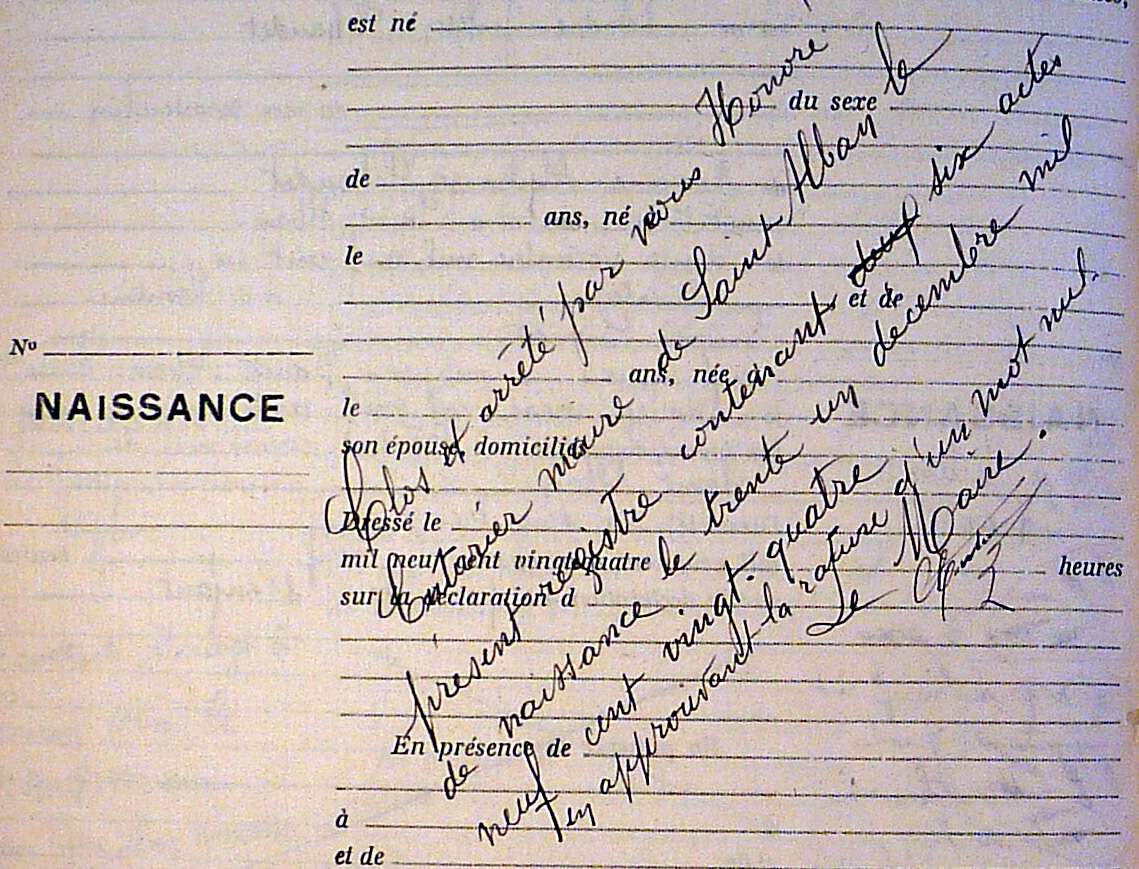 est né
du sexe
de
ans, né
le
et de
Nº
ans, née à
NAISSANCE
le
son épouse, domicilié
Dressé le
mil neuf cent vingt-quatre
heures
sur la déclaration d
En présence de
à
et de
Clos et arrêté par nous Honoré
maire de Saint Alban le
présent registre contenant six actes
de naissance le trente un decembre mil
neuf cent vingt-quatre
en approuvant la rature d'un mot nul.
Le Maire.